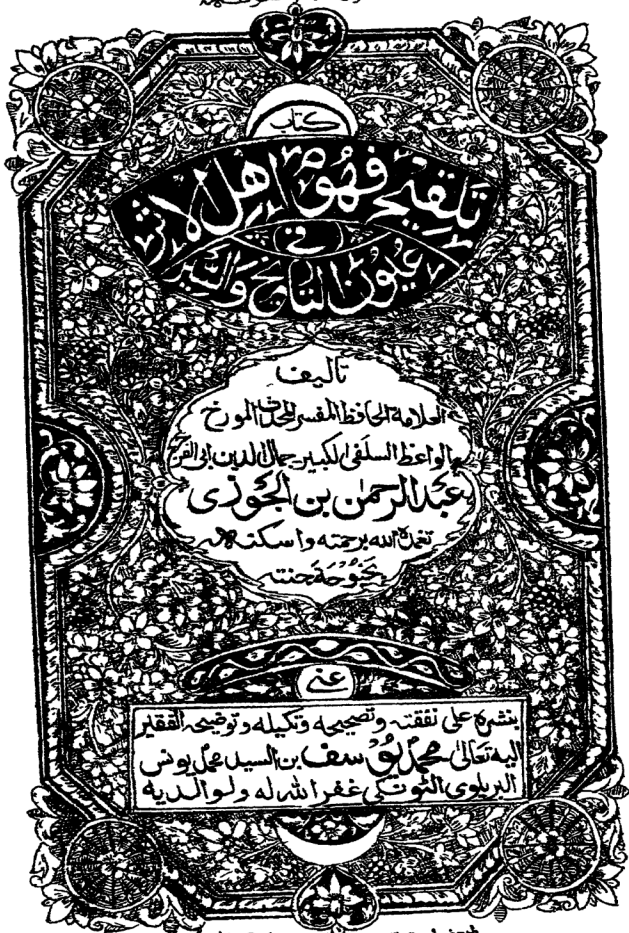 كتاب
تلقيح فهوم اهل الاثر
في
عيون التاريخ والسير
تاليف
العلامة الحافظ المفسر المحدث المورخ
الواعظ السلفى الكبير جمال الدين ابى الفرج
عبد الرحمٰن بن الجوزى
تغمده الله برحمته واسكنه
بحبوحة جنته
عنى
بنشره على نفقته وتصحيحه وتكميله وتوضيحه الفقير
اليه تعالىٰ محمد يوسف بن السيد محمد يونس
البريلوى الٹونكى غفر الله له ولوالديه